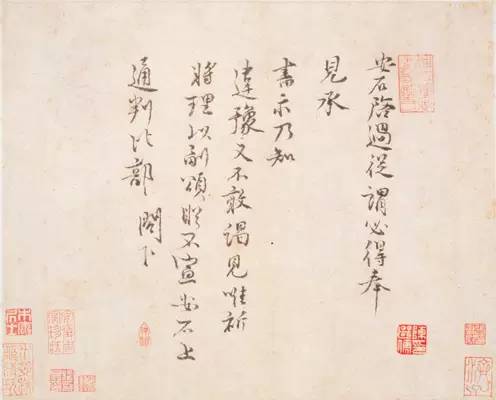 安石啓過從謂必得奉
見承
書示乃知
違豫又不敢謁見唯祈
將理以副頌詠不宣安石上
通判比部 閣下